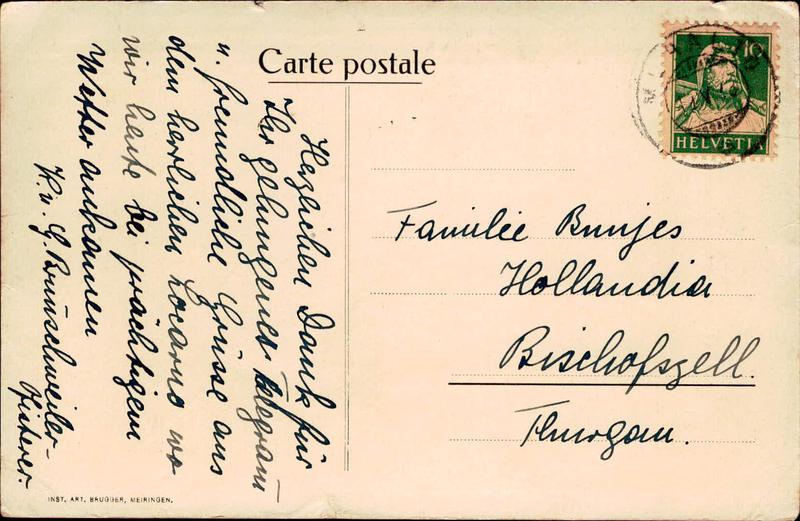 Carte postale
10
HELVETIA
Herzlichen Dank für
Ihr gelungenes Telegram
u. freundliche Grüsse aus
dem herrlichen Locarno wo
wir heute bei prächtigem
Wetter ankamen
K. u. G. Brunschweiler-
Pfisterer.
Familie Bunjes
Hollandia
Bischofszell.
Thurgau.
INST. ART. BRUGGER, MEIRINGEN.